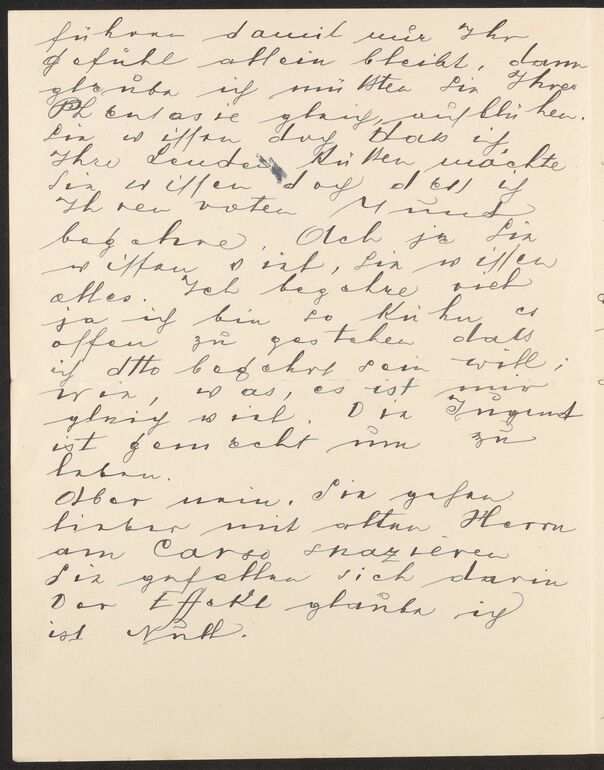 führen damit nur Ihr
gefühl allein bleibt, dann
glaube ich müßten Sie Ihrer
Phentasie gleich aufblühen.
Sie wissen doch daß ich
Ihre Lenden küßen möchte
Sie wissen doch daß ich
Ihren roten Mund
begehre. Ach ja Sie
wissen viel, Sie wissen
alles. Ich begehre viel
ja ich bin so kühn es
offen zu gestehen daß
ich dtto begehrt sein will;
wie, was, es ist mir
gleich viel. Die Jugend
ist gemacht um zu
leben.
Aber nein. Sie gehen
lieber mit alten Herrn
am Corso spazieren
Sie gefallen sich darin
Der Effekt glaube ich
ist Null.